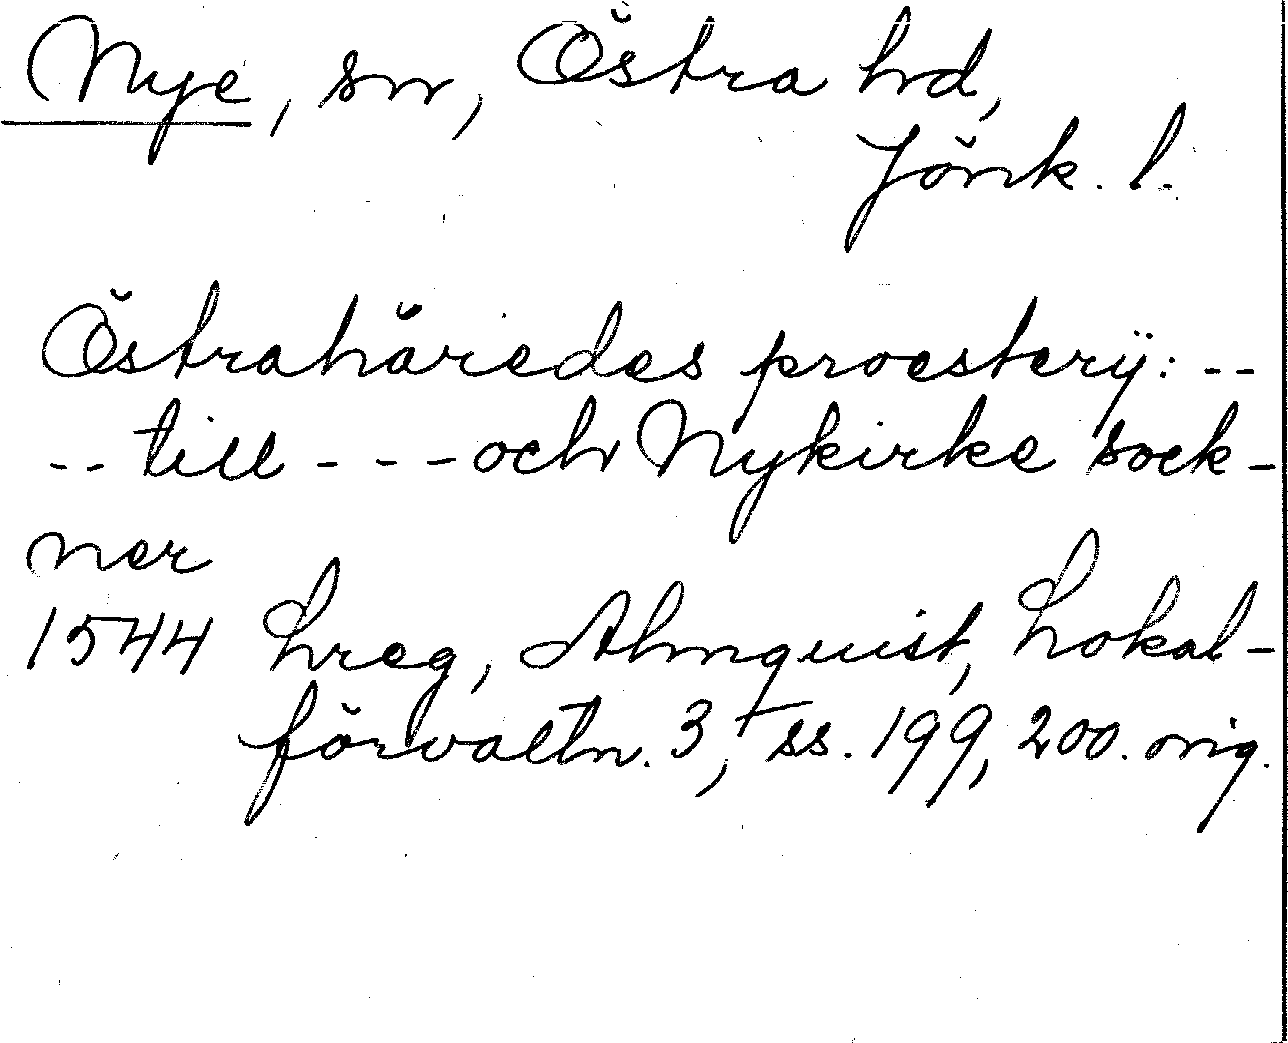 Nye, sn, Östra hd,
Jönk. l.
Östrahäredes proestery̎: --
-- till - - - och Nykirke sock-
ner
1544 Lreg, Almquist, Lokal-
förvaltn. 3, + ss. 199, 200. orig.